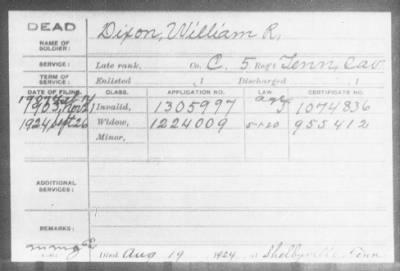 DEAD
NAME OF SOLDIER: Dixon, William R.
SERVICE: Late rank, Co. C. 5 Reg't Tenn. Cav
TERM OF SERVICE: Enlisted , 1 Discharged , 1
DATE OF FILING. CLASS. APPLICATION NO. LAW CERTIFICATE NO.
Invalid, 1305997 1074836
1924 Sept 26 Widow, 1224009 5-1-20 955412
Minor,
ADDITIONAL SERVICES:
REMARKS:
Died Aug 19 1924 at Shelbyville Tenn